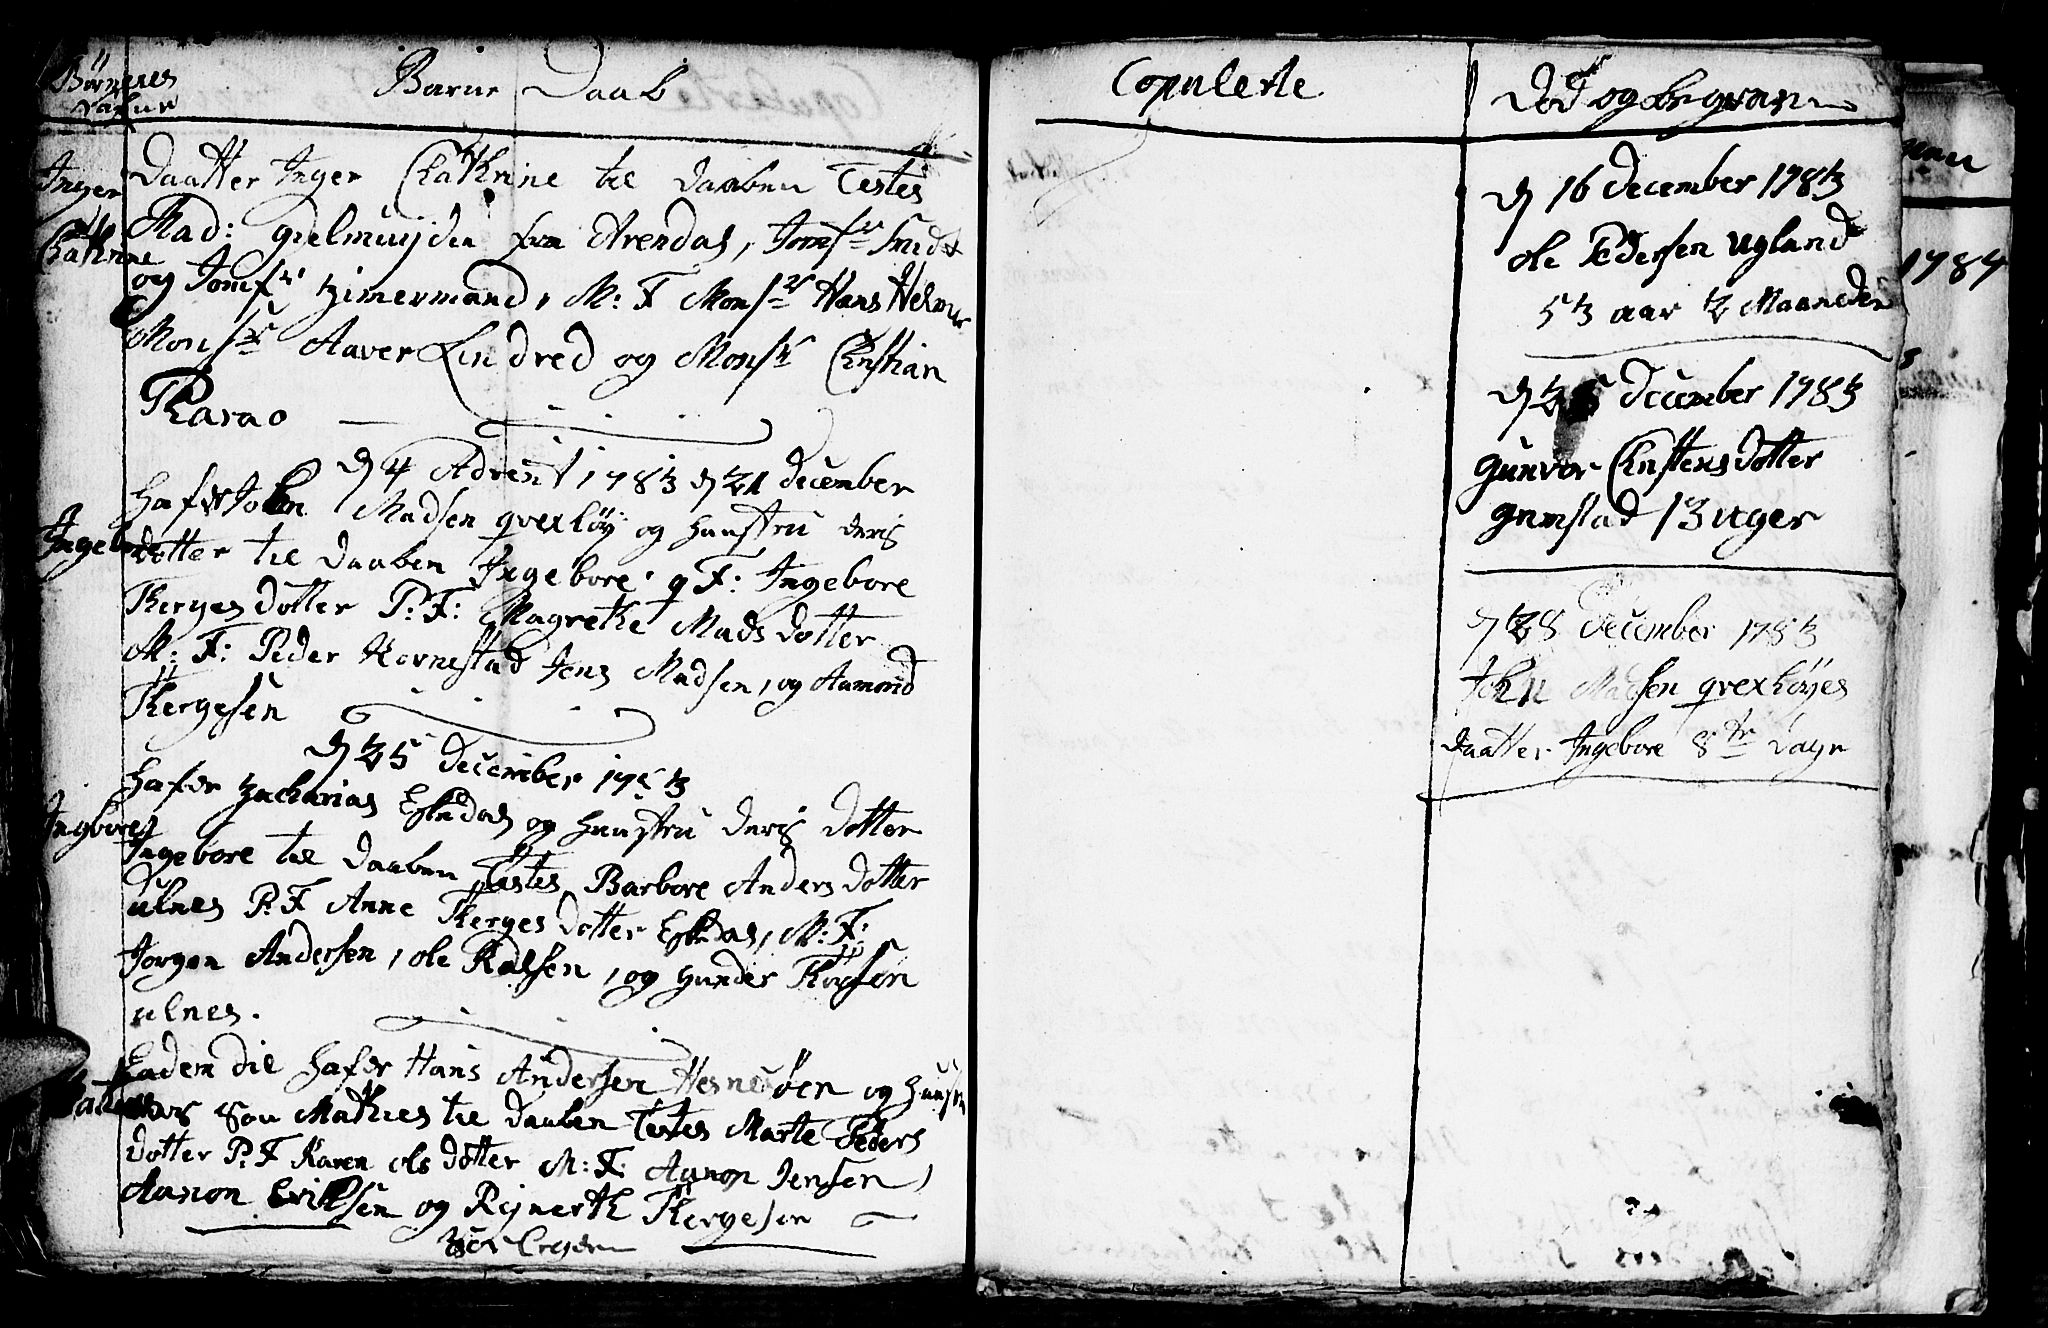 Børnenes
Nafne
Barne Daab
Inger
Cathrine
Daatter Inger Chathrine til daaben Testes
Mad: gielmuyden fra Arendal, Jomfr Smidt
og Jomfr zimermand, M: F Monsr Hans Helmer
Monsr Aaver Lindred og Monsr Christian
Tharao
d 4 Advent 1783 d 21 december
Ingebore
hafer John Madsen qvexhøy og hustru deris
dotter til daaben Ingebore. q F: Ingebore
Therges dotter P: F: Magrethe Mads dotter
M: F: Peder Hovnestad Jens Madsen, og Aamond
Thergesen
d 25 December 1783
Ingbore
hafer zacharias Eskedal og hustru deris dotter
Ingebore til daaben Testes Barbore Anders dotter
ulnes P: F Anne Therges dotter Eskedal, M: F:
Jorgen Andersen, ole Roelsen, og gunder
ulnes.
Eadem die hafer Hans Andersen Hesnesøen og hustru
Søn Mathies til daaben Testes Marte Peders
dotter P: F Karen ols dotter M: F: Aanon Jensen,
Aanon Erichsen og Rejnerth Thergesen
Copulerte
død og begraven
d 16 december 1783
ole Pedersen ugland
53 aar 2 Maaneder
d 26 december 1783
gunvor Christens dotter
grimstad 13 uger
d 28 december 1783
John Madsen qvexhøyes
daatter Ingebore 8te dage
1784